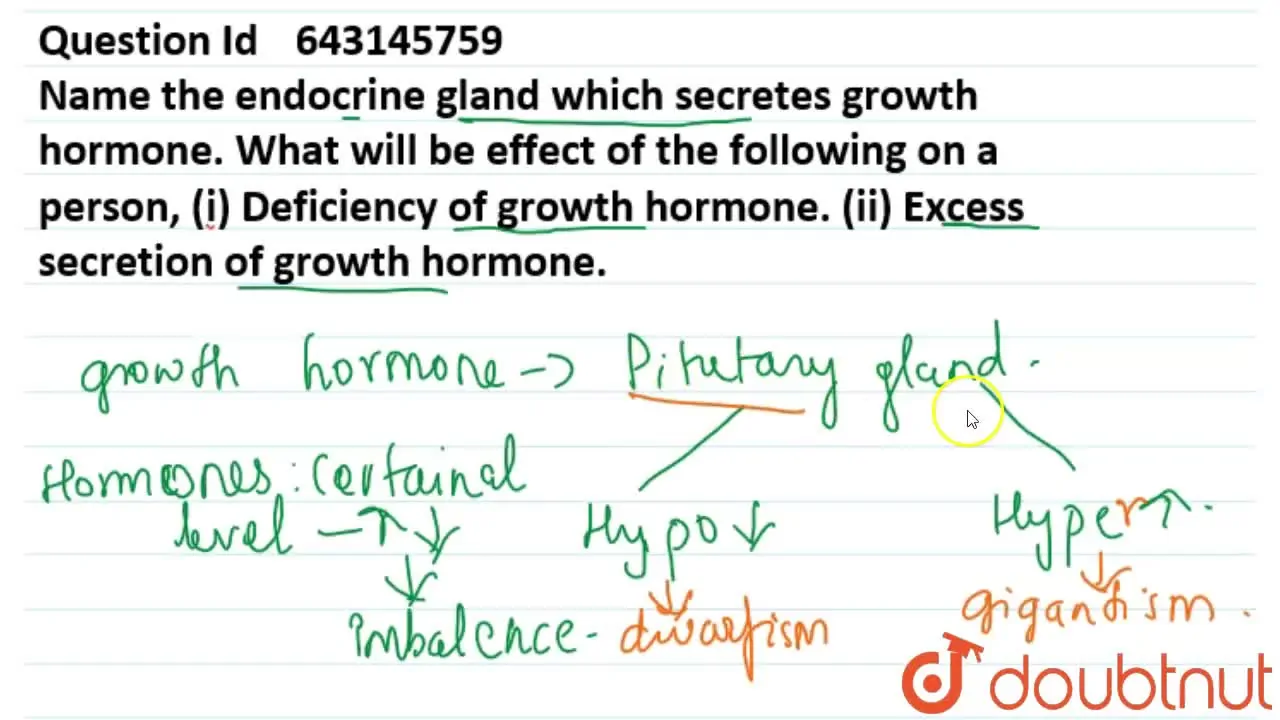 Question Id 643145759
Name the endocrine gland which secretes growth
hormone. What will be effect of the following on a
person, (i) Deficiency of growth hormone. (ii) Excess
secretion of growth hormone.
growth hormone -> Pitutary gland.
Hormones : certainal
level - ↑ ↓
Hypo ↓
Hyper ↑.
↓
↓
↓
imbalence - dwarfism
gigantism.
doubtnut